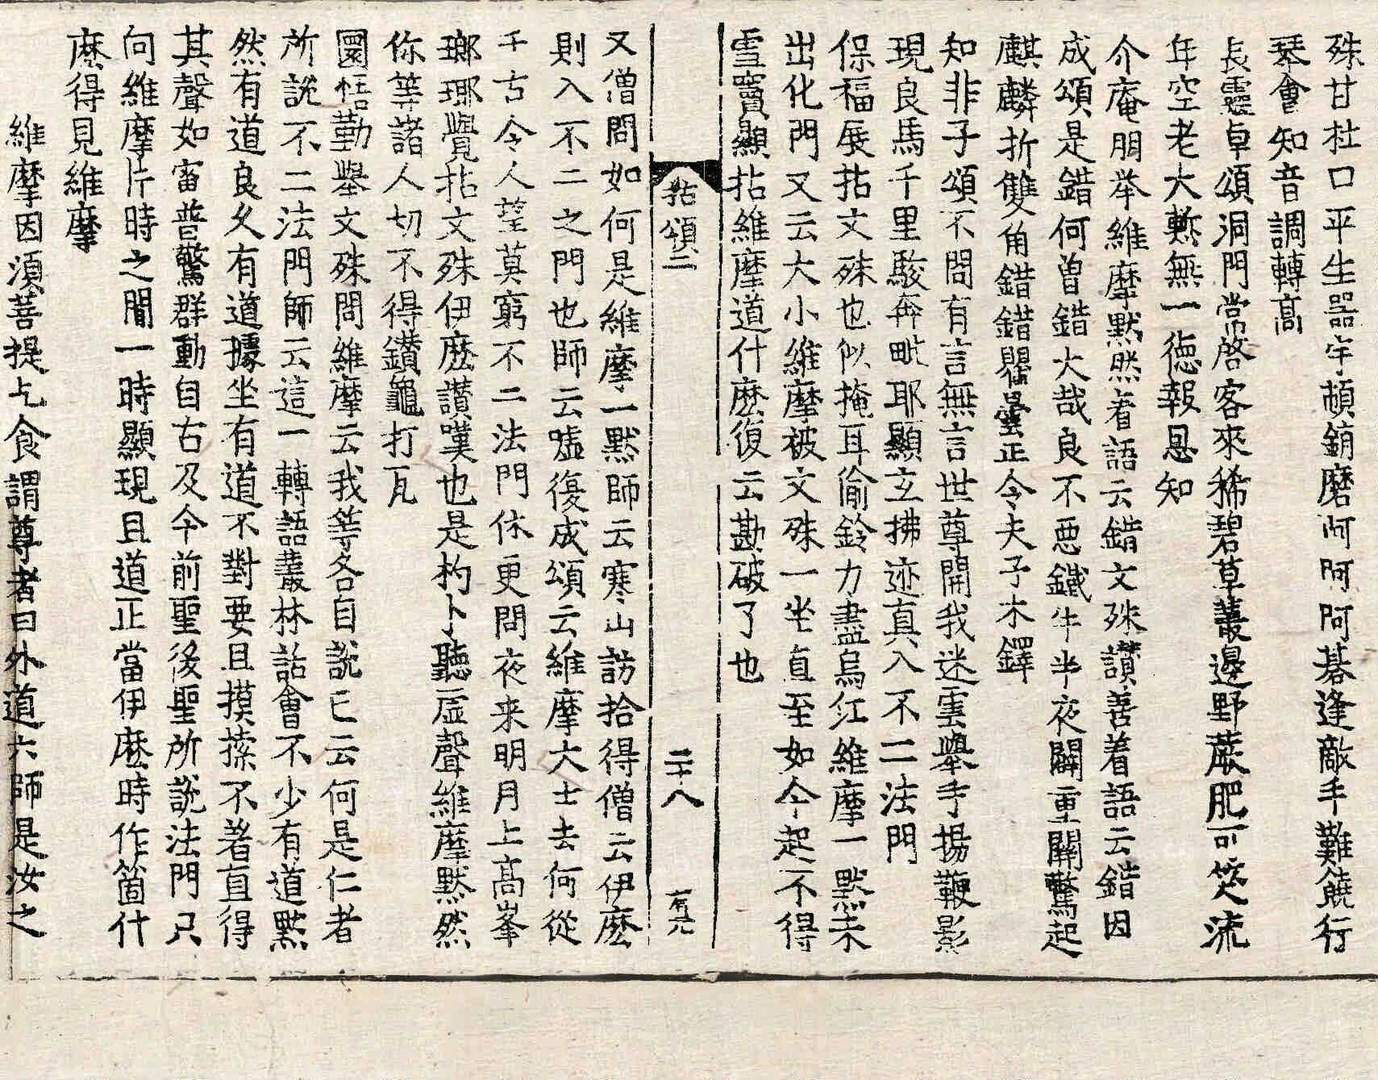 殊甘杜口平生器宇頓銷磨阿阿阿碁逢敵手難饒行
琴會知音調轉高
長靈卓頌洞門常啓客來稀碧草叢邊野蕨肥可笑流
年空老大慙無一德報恩知
介庵朋举維摩默然者語云錯文殊讃善着語云錯因
成頌是錯何曾錯大哉良不惡鐵牛半夜闢重關驚起
麒麟折雙角錯錯瞿曇正令夫子木鐸
知非子頌不問有言無言世尊開我迷雲舉手揚鞭影
現良馬千里駿奔毗耶顯玄拂迹真入不二法門
保福展拈文殊也似掩耳偷鈴力盡烏江維摩一默未
出化門又云大小維摩被文殊一坐直至如今起不得
雪竇顯拈維摩道什麽復云勘破了也
拈頌二 二十八
又僧問如何是維摩一默師云寒山訪拾得僧云伊麽
則入不二之門也師云嘘復成頌云維摩大士去何從
千古令人望莫窮不二法門休更問夜来明月上高峯
瑯瑘覺拈文殊伊麽讃嘆也是杓卜聽虛聲維摩默然
你等諸人切不得鑽龜打瓦
圜悟勤舉文殊問維摩云我等各自說已云何是仁者
所說不二法門師云這一轉語叢林話會不少有道默
然有道良久有道據坐有道不對要且摸㨿不著直得
其聲如雷普驚群動自古及今前聖後聖所說法門只
向維摩片時之間一時顯現且道正當伊麽時作箇什
麽得見維摩
維摩因須菩提乞食謂尊者曰外道六師是汝之